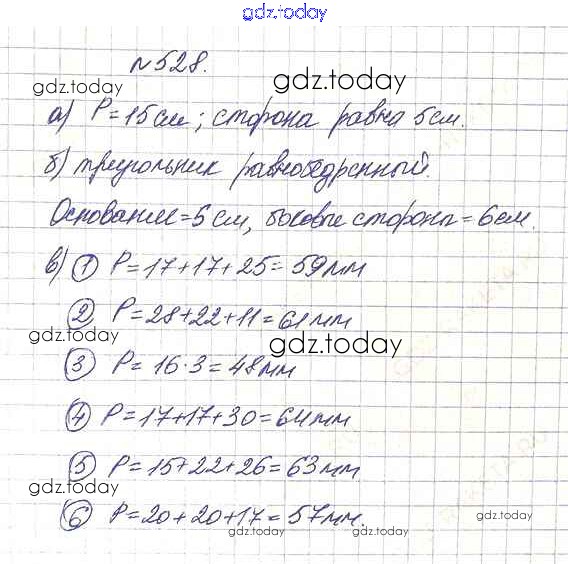 gdz.today
№528.
gdz.today
gdz.today
а) P=15см; сторона равна 5см.
б) треугольник равнобедренный.
Основание=5см, боковые стороны=6см.
в) 1 P=17+17+25=59мм
2 P=28+22+11=61мм
gdz.today
gdz.today
3 P=16·3=48мм
4 P=17+17+30=64мм
5 P=15+22+26=63мм
gdz.today
6 P=20+20+17=57мм.
gdz.today
gdz.today
gdz.today